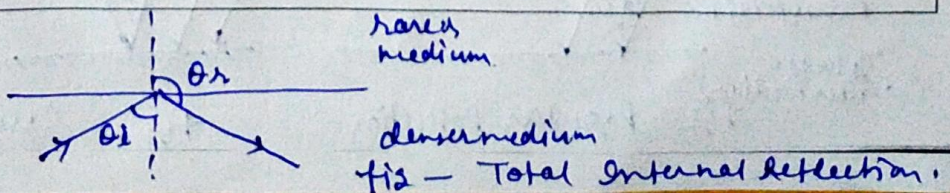 rarer
medium
θr
θi
denser medium
fig - Total Internal Reflection.